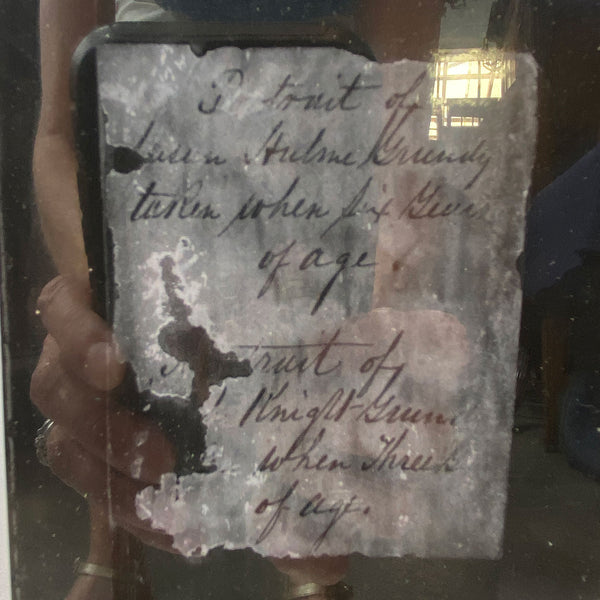 Portrait of
Hulme Grundy
taken when six Years
of age.
Portrait of
Knight Grun
when Three
of age.